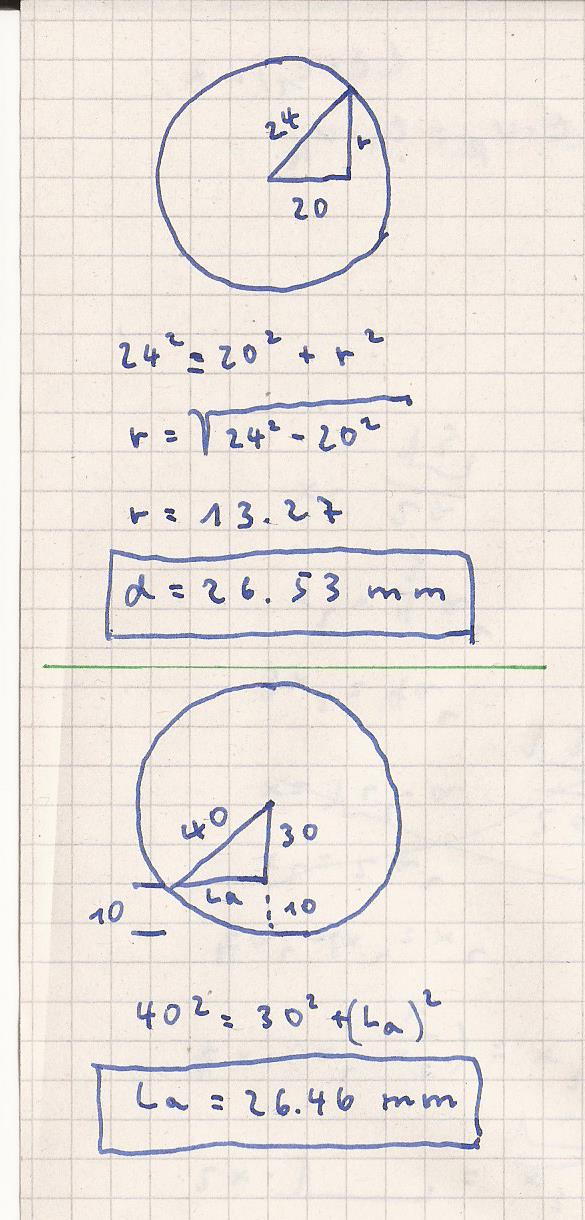 24
r
20
24² = 20² + r²
r = √24² - 20²
r = 13.27
d = 26.53 mm
40
30
La
10
10
40² = 30² + (La)²
La = 26.46 mm